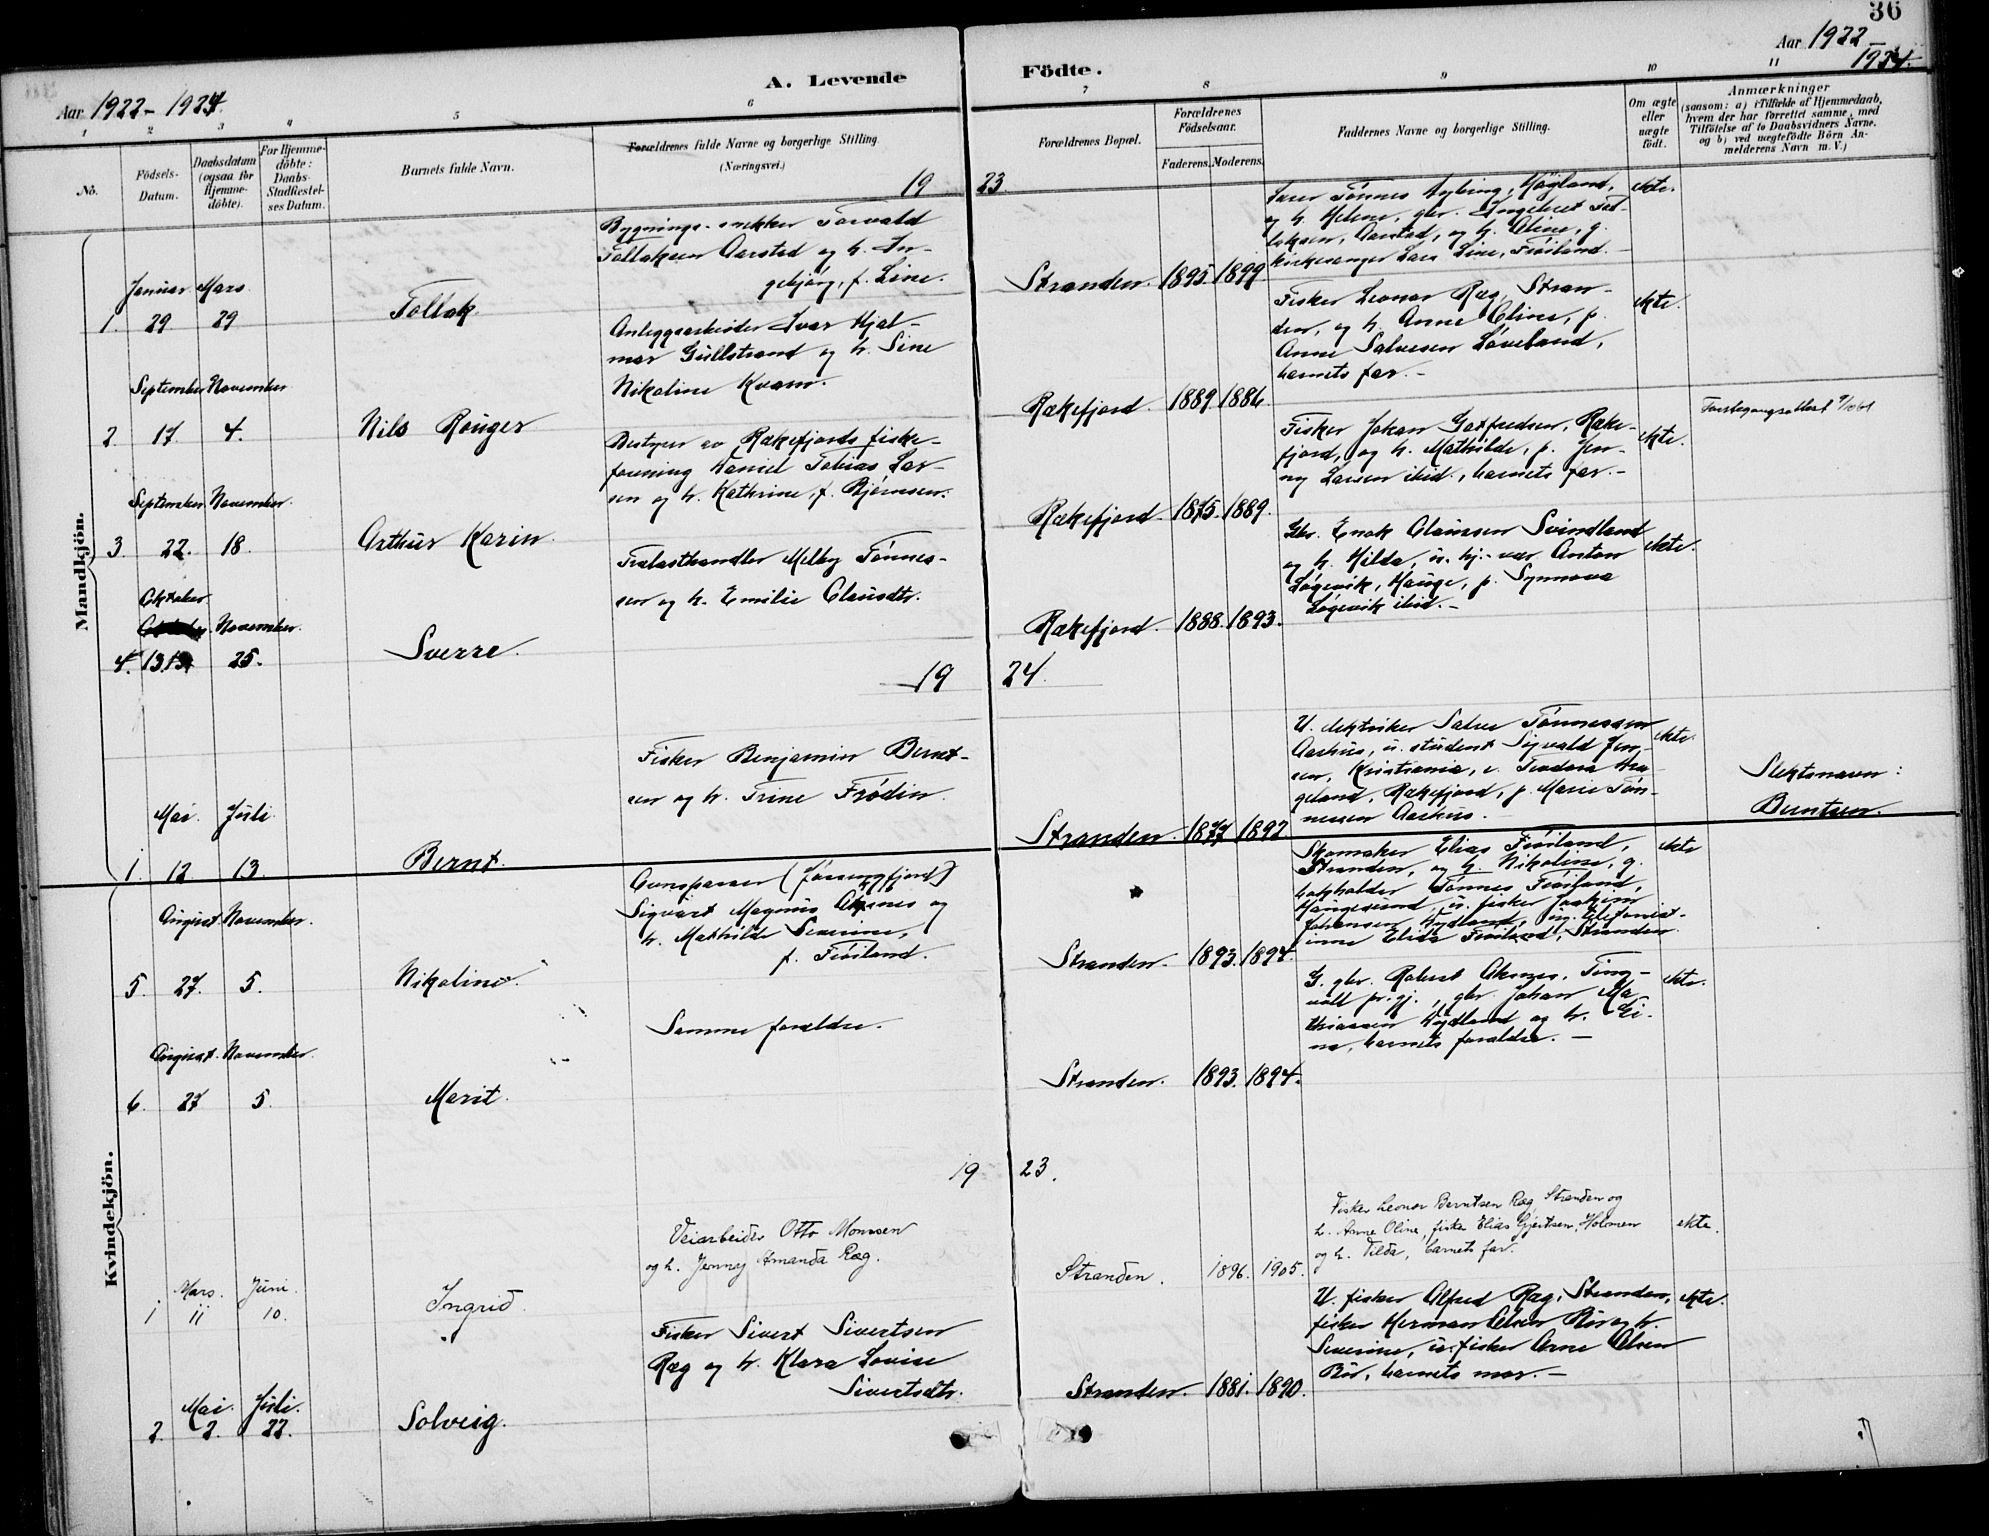 36
Aar 1922-
1924.
A. Levende
Födte.
Aar 1922-1924.
1 2 3 4 5 6 7 8 9 10 11
No.
Födsels-
Datum.
Daabsdatum
(ogsaa for
Hjemme-
döbte).
For Hjemme-
döbte:
Daabs-
Stadfæstel-
ses Datum.
Barnets fulde Navn.
Forældrenes fulde Navne og borgerlige Stilling
(Næringsvei.)
Forældrenes Bopæl.
Forældrenes
Födselsaar.
Faderens. Moderens.
Faddernes Navne og borgerlige Stilling.
Om ægte
eller
uægte
födt.
Anmærkninger
(saasom: a) i Tilfælde af Hjemmedaab,
hvem der har forrettet samme, med
Tilföielse af to Daabsvidners Navne.
og b) ved uægtefödte Börn An-
melderens Navn m. V.)
Mandkjön.
19 23
1. Januar 29 Mars 29
Tollak
Bygnings-snekker Torvald
Tollaksen Aarstad og h. In-
gebjørg, f. Line.
Stranden. 1895. 1899
Tønnes Høgland,
og h. Helene, gbr. Ingebret Tol-
laksen, Aarstad, og h. Oline, g.
kirkesanger Lars Line, Frøiland.
ekte.
2 September 17. November 4.
Nils Rouger
Anleggsarbeider Ivar Hjal-
mar Gullstrand og h. Sine
Nikoline Kvam.
Rækefjord. 1889. 1886.
Fisker Leonar Ræg, Stran-
den, og h. Anne Oline, p.
Anne Salvesen Løveland,
barnets far.-
ekte.
3 September 22. November 18.
Arthur Karin
Bestyrer av Rækefjords fiske-
forening Daniel Tobias Lar-
sen og h. Kathrine, f. Bjørnsen.
Rækefjord 1875. 1889.
Fisker Johan Gotfredsen, Ræke-
fjord, og h. Mathilde, p. Jen-
ny Larsen ibid., barnets far.-
ekte.
4. Oktober 13. November 25.
Sverre.
Trælasthandler Melby Tønnes-
sen og h. Emilie Clausdtr.
Rækefjord. 1888. 1893.
Gbr. Enok Claussen Svindland
og h. Hilda, u. hj.-vær. Anton
Løgevik, Hauge, p. Synnøva
Løgevik ibid.-
ekte.
19 24.
1. Mai 12 Juli 13.
Bernt.
Fisker Benjamin Bernt-
sen og h. Trine Frødin.
Stranden. 1877 1892
U. elektriker Salve Tønnessen
Aarhus, u. student Sigvald Jen-
sen, Kristiania, p. Teodora Hau-
geland, Rækefjord, p. Marie Tøn-
nessen Aarhus.
ekte.
Slektsnavn:
Berntsen.
Kvindekjön.
5. August 27. November 5.
Nikoline.
(Jøssingfjord)
Sigvart Magnus Aksnes og
h. Mathilde Severine,
f. Frøiland.
Stranden. 1893. 1894.
Skomaker Elias Frøiland,
Stranden, og h. Nikoline, g.
Tønnes Frøiland,
Haugesund, u. fisker Joakim
Johansen Hydland, pig. telefonist-
inne Elida Frøiland, Stranden.
ekte
6. August 27 November 5.
Marit.
Samme foreldre.
Stranden. 1893. 1894.
G. gbr. Robert Aksnes, Ting-
voll pr.gj., gbr. Johan Ma-
thiassen Hydland og h. Gi-
na, barnets foreldre.-
ekte.
19 23.
1 Mars. 11 Juni. 10.
Ingrid.
Veiarbeider Otto Monssen
og h. Jenny Amanda Ræg.
Stranden. 1896. 1905.
Fisker Leonor Berntsen Ræg, Stranden og
h. Anne Oline, fisker Elias Gjertsen, Holmen
og h. Tilda, barnets far.
ekte.
2. Mai. 2. Juli. 22.
Solveig.
Fisker Sivert Sivertsen
Ræg og h. Klara Lovise
Sivertsdtr.
Stranden. 1881. 1890.
U. fisker Alfred Ræg, Stranden,
fisker Herman Olsen Bø og h.
Severine, u. fisker Arne Olsen
Bø, barnets mor.-
ekte.